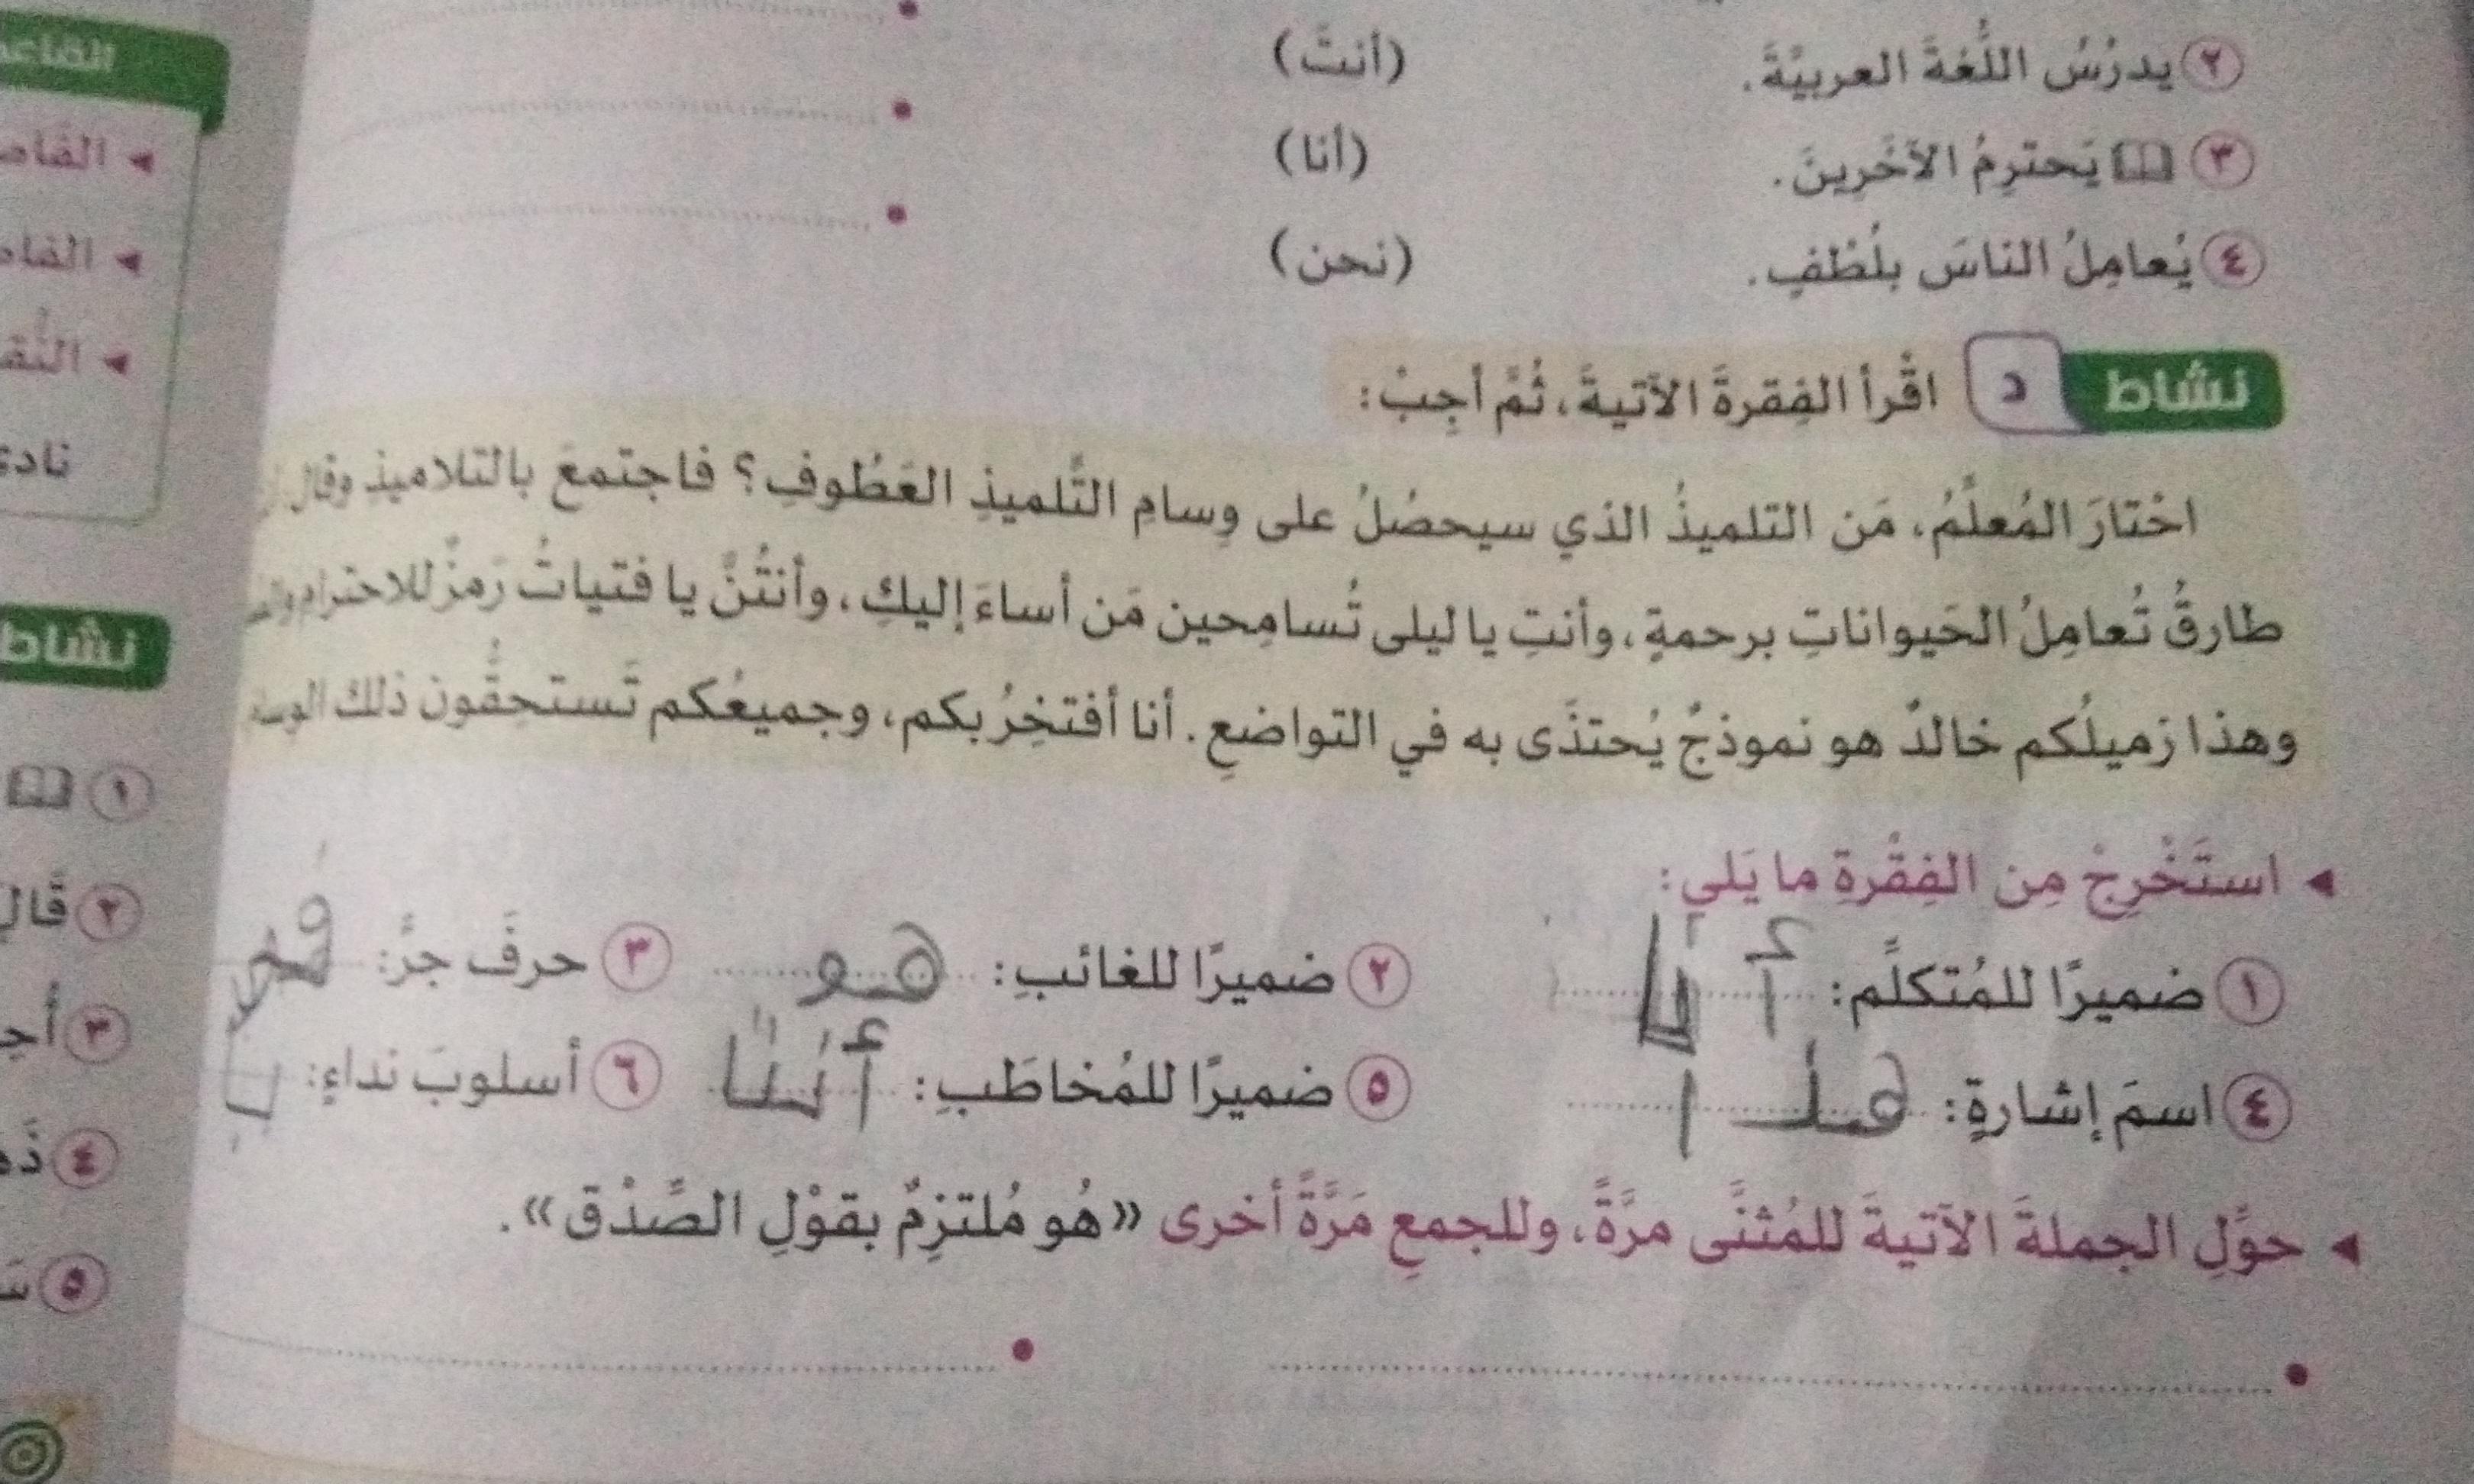 ٢ يدرُسُ اللُّغةَ العربيَّةَ. (أنتَ)
٣ يَحترِمُ الآخَرِينَ. (أنا)
٤ يُعامِلُ الناسَ بلُطْفٍ. (نحن)
نشاط د اقْرأ الفِقرةَ الآتيةَ، ثُمَّ أجِبْ:
احْتارَ المُعلِّمُ، مَن التلميذُ الذي سيحصُلُ على وِسامِ التِّلميذِ العَطُوفِ؟ فاجتمعَ بالتلاميذِ وقال
طارقُ تُعامِلُ الحَيواناتِ برحمةٍ، وأنتِ يا ليلى تُسامِحين مَن أساءَ إليكِ، وأنتُنَّ يا فتياتُ رَمزٌ للاحترامِ
وهذا زميلُكم خالدٌ هو نموذجٌ يُحتذَى به في التواضعِ. أنا أفتخِرُ بكم، وجميعُكم تَستحِقُّون ذلك
◂ استَخْرِجْ مِن الفِقْرةِ ما يَلي:
١ ضميرًا للمُتكلِّم: أنا ٢ ضميرًا للغائبِ: هو ٣ حرفَ جرٍّ: في
٤ اسمَ إشارةٍ: هذا ٥ ضميرًا للمُخاطَبِ: ٦ أسلوبَ نداءٍ:
◂ حوِّلِ الجملةَ الآتيةَ للمُثنَّى مرَّةً، وللجمعِ مَرَّةً أخرى «هُو مُلتزِمٌ بقوْلِ الصِّدْق».
نشاط
١
٢ قَالَ
٣
٤
٥